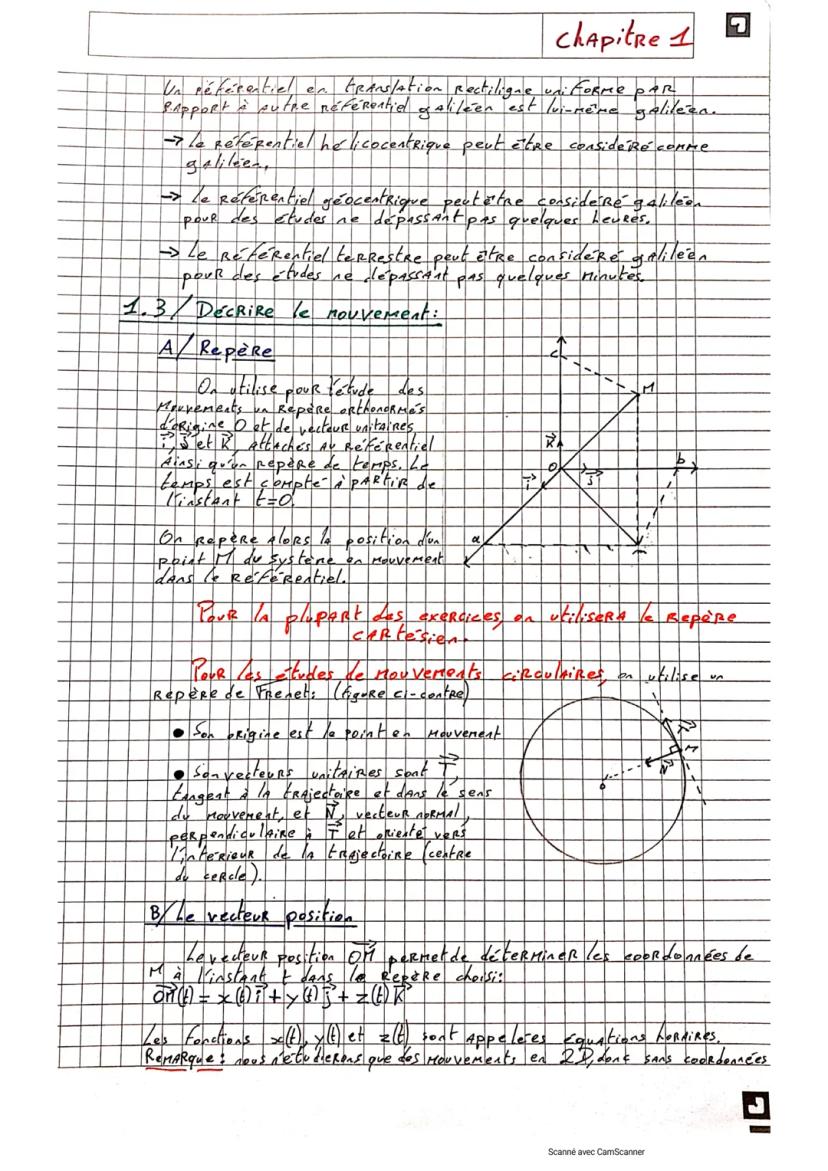 Chapitre 1
Un référentiel en translation rectiligne uniforme par
rapport à autre référentiel galiléen est lui-même galiléen.
→ le référentiel hélicocentrique peut être considéré comme
galiléen,
→ le référentiel géocentrique peut être considéré galiléen
pour des études ne dépassant pas quelques heures.
→ Le référentiel terrestre peut être considéré galiléen
pour des études ne dépassant pas quelques minutes.
1.3/ Décrire le mouvement:
A/ Repère
On utilise pour l'étude des
Mouvements un repère orthonormés
d'origine O et de vecteur unitaires
i⃗, j⃗ et k⃗, attachés au référentiel
Ainsi qu'un repère de temps. Le
temps est compté à partir de
l'instant t=0.
C
M
k⃗
O
j⃗
b
i⃗
a
On repère alors la position d'un
point M du système en mouvement
dans le référentiel.
Pour la plupart des exercices, on utilisera le repère
cartésien.
Pour les études de mouvements circulaires, on utilise un
repère de Frenet: (figure ci-contre)
● Son origine est le point en mouvement
● Son vecteurs unitaires sont T⃗,
tangent à la trajectoire et dans le sens
du mouvement, et N⃗, vecteur normal,
perpendiculaire à T⃗ et orienté vers
l'intérieur de la trajectoire (centre
du cercle).
T⃗
M
N⃗
o
B/ Le vecteur position
Le vecteur position OM⃗ permet de déterminer les coordonnées de
M à l'instant t dans le repère choisi:
OM⃗(t) = x(t) i⃗ + y(t) j⃗ + z(t) k⃗
Les fonctions x(t), y(t) et z(t) sont appelées équations horaires.
Remarque: nous n'étudierons que des mouvements en 2D, donc sans coordonnées
Scanné avec CamScanner